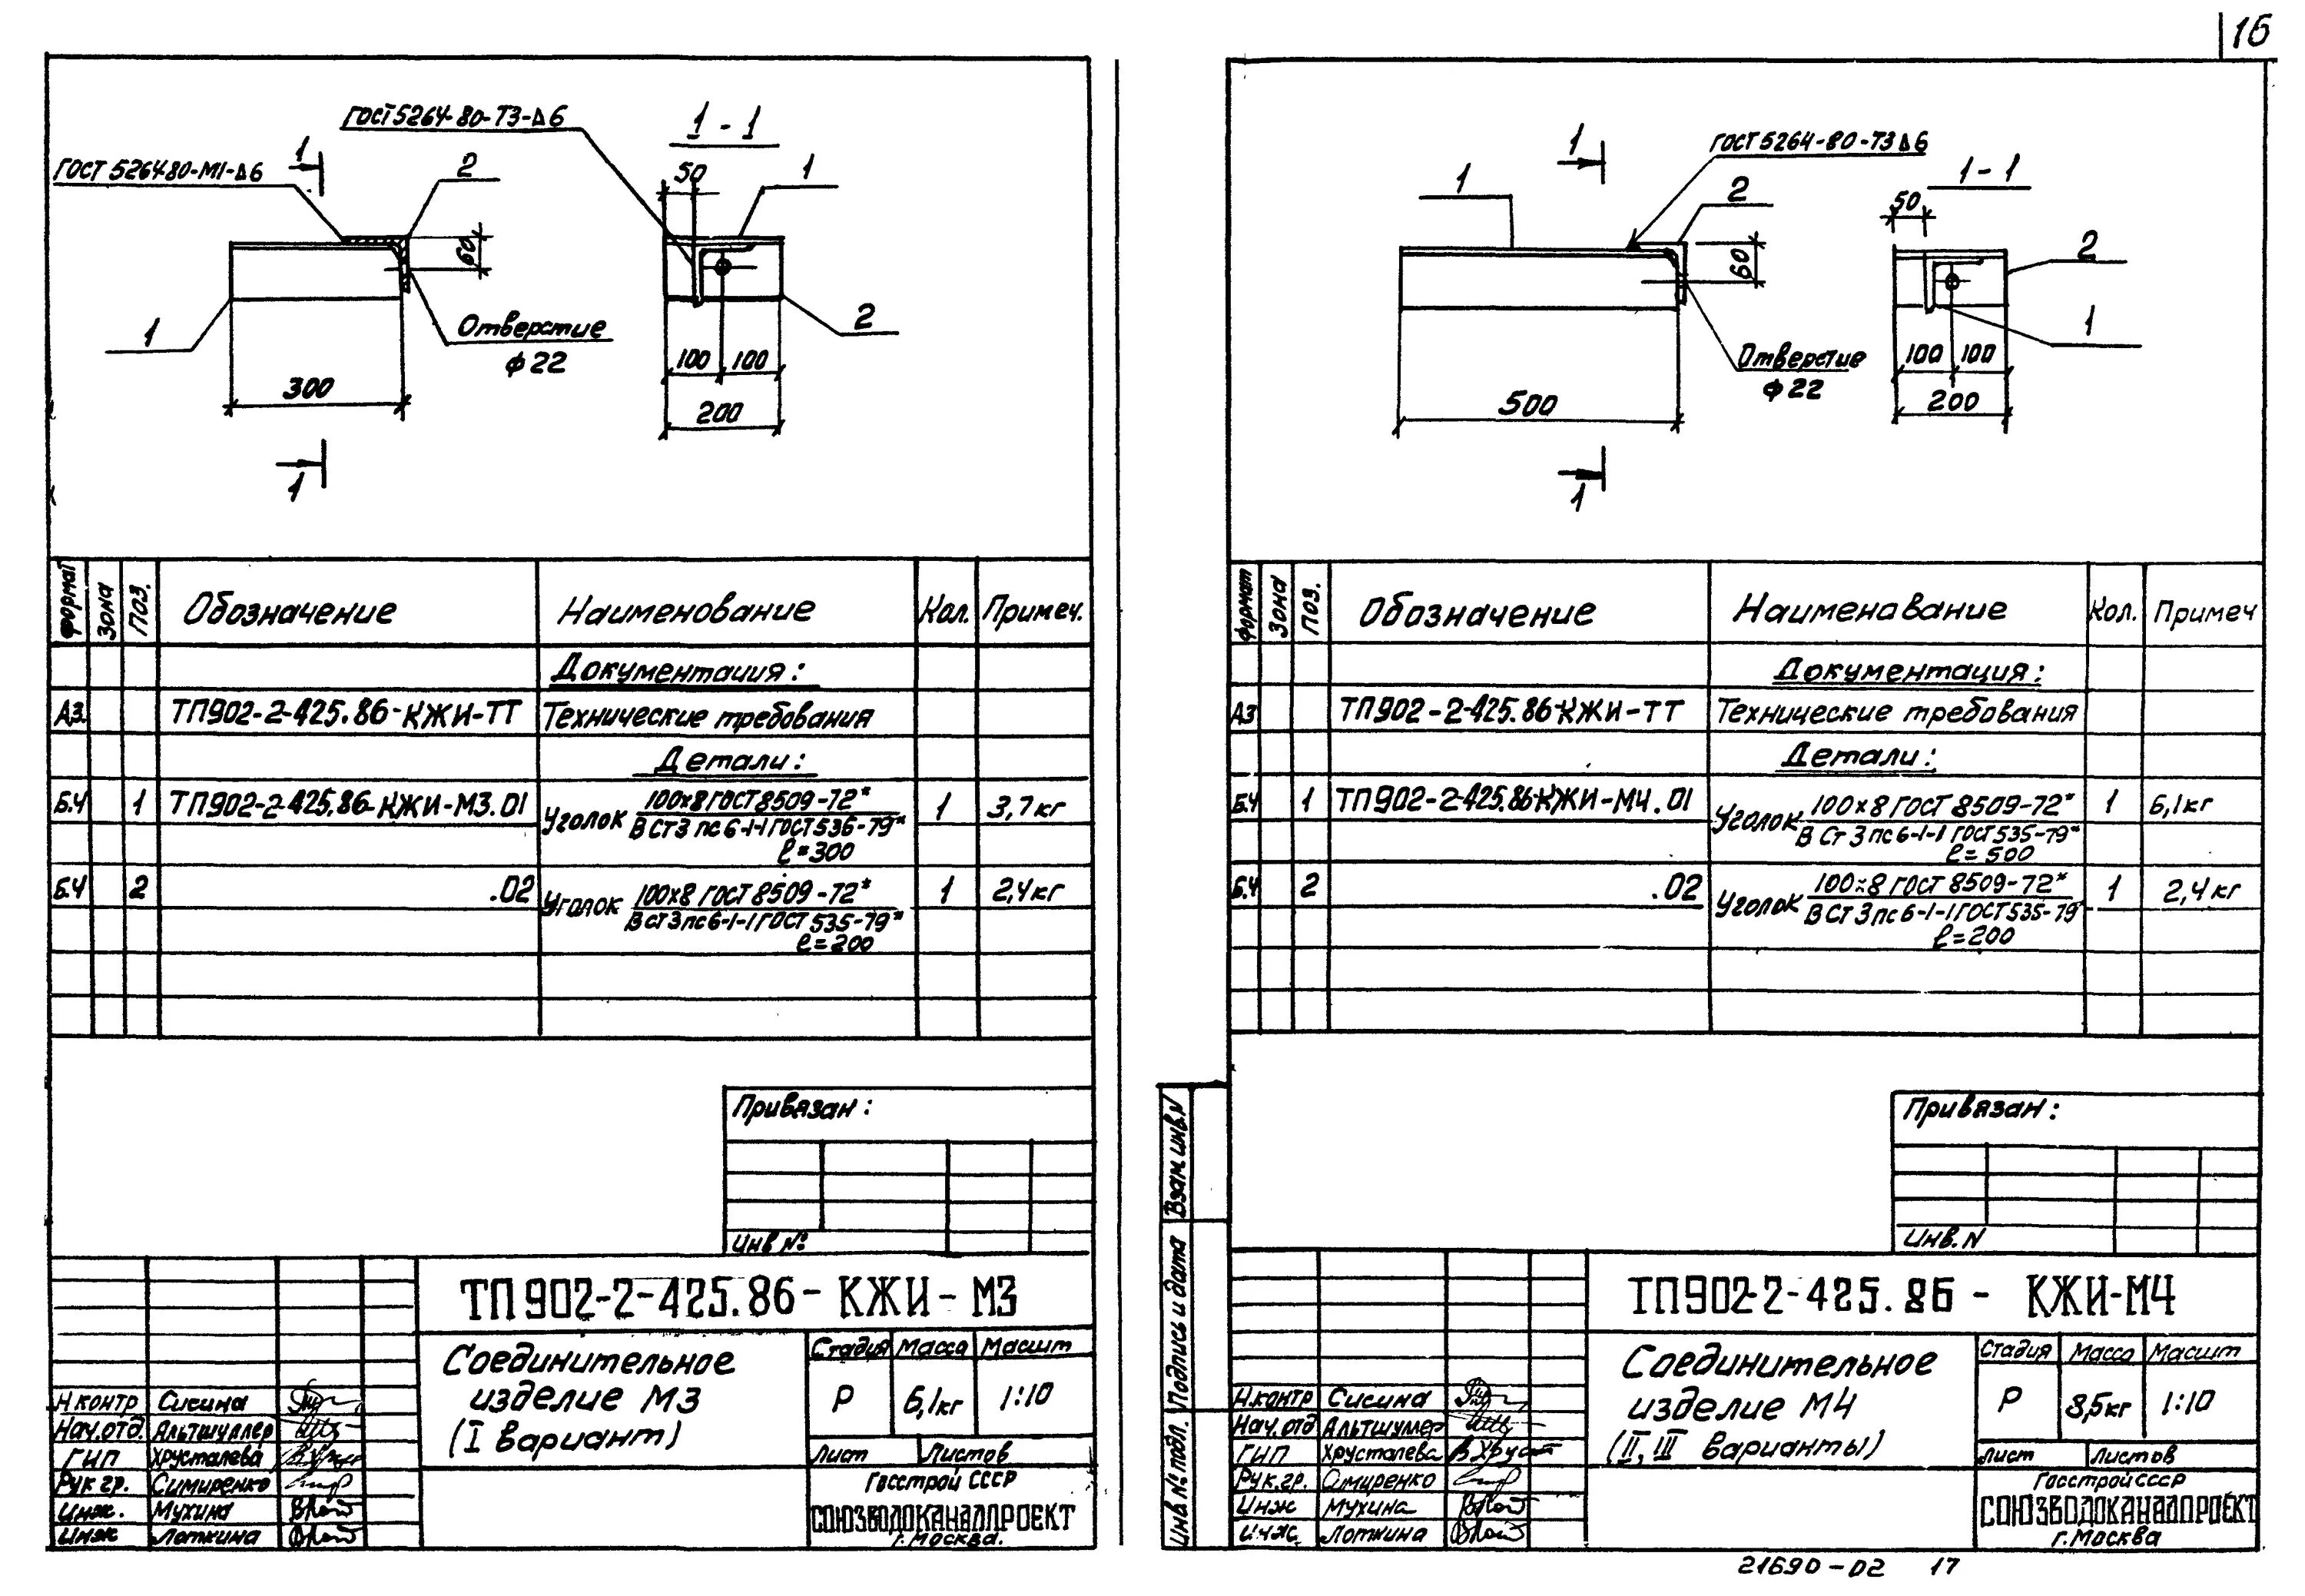 16
ГОСТ 5264-80-Т3-Δ6
1-1
ГОСТ 5264 80-М1-Δ6
1
2
50
1
60
1
Отверстие
ϕ22
2
300
100
100
200
1
ГОСТ 5264-80-Т3 Δ6
1
1
2
1-1
50
60
2
1
Отверстие
ϕ22
100
100
500
200
1
Формат
Зона
Поз.
Обозначение
Наименование
Кол.
Примеч.
Документация:
А3.
ТП902-2-425.86-КЖИ-ТТ
Технические требования
Детали:
Б.Ч
1
ТП902-2-425.86-КЖИ-М3.01
Уголок
100х8 ГОСТ 8509-72*
В Ст 3 пс 6-1-1 ГОСТ 535-79*
ℓ=300
1
3,7кг
Б.Ч
2
.02
Уголок
100х8 ГОСТ 8509-72*
В Ст 3 пс 6-1-1 ГОСТ 535-79*
ℓ=200
1
2,4кг
Привязан:
Инв №
ТП902-2-425.86-КЖИ-М3
Соединительное
изделие М3
(I вариант)
Стадия
Масса
Масшт
Р
6,1кг
1:10
Лист
Листов
Госстрой СССР
СОЮЗВОДОКАНАЛПРОЕКТ
г. Москва.
Н.контр Сисина
Нач.отд. Альтшуллер
ГИП Хрусталева
Рук гр. Симиренко
Инж. Мухина
Инж Лоткина
Формат
Зона
Поз.
Обозначение
Наименавание
Кол.
Примеч
Документация:
А3
ТП902-2-425.86-КЖИ-ТТ
Технические требования
Детали:
Б.Ч
1
ТП902-2-425.86-КЖИ-М4.01
Уголок
100х8 ГОСТ 8509-72*
В Ст 3 пс 6-1-1 ГОСТ 535-79*
ℓ=500
1
6,1кг
Б.Ч
2
.02
Уголок
100х8 ГОСТ 8509-72*
В Ст 3 пс 6-1-1 ГОСТ 535-79
ℓ=200
1
2,4кг
Привязан:
Инв. N
Взам инв. N
Подпись и дата
Инв № подл.
ТП902-2-425.86 - КЖИ-М4
Соединительное
изделие М4
(II, III варианты)
Стадия
Масса
Масшт
Р
8,5кг
1:10
Лист
Листов
Госстрой СССР
СОЮЗВОДОКАНАЛПРОЕКТ
г. Москва
Н.контр Сисина
Нач.отд Альтшумер
ГИП Хрусталева
Рук.гр. Симиренко
Инж Мухина
Инж. Лоткина
21690-02 17